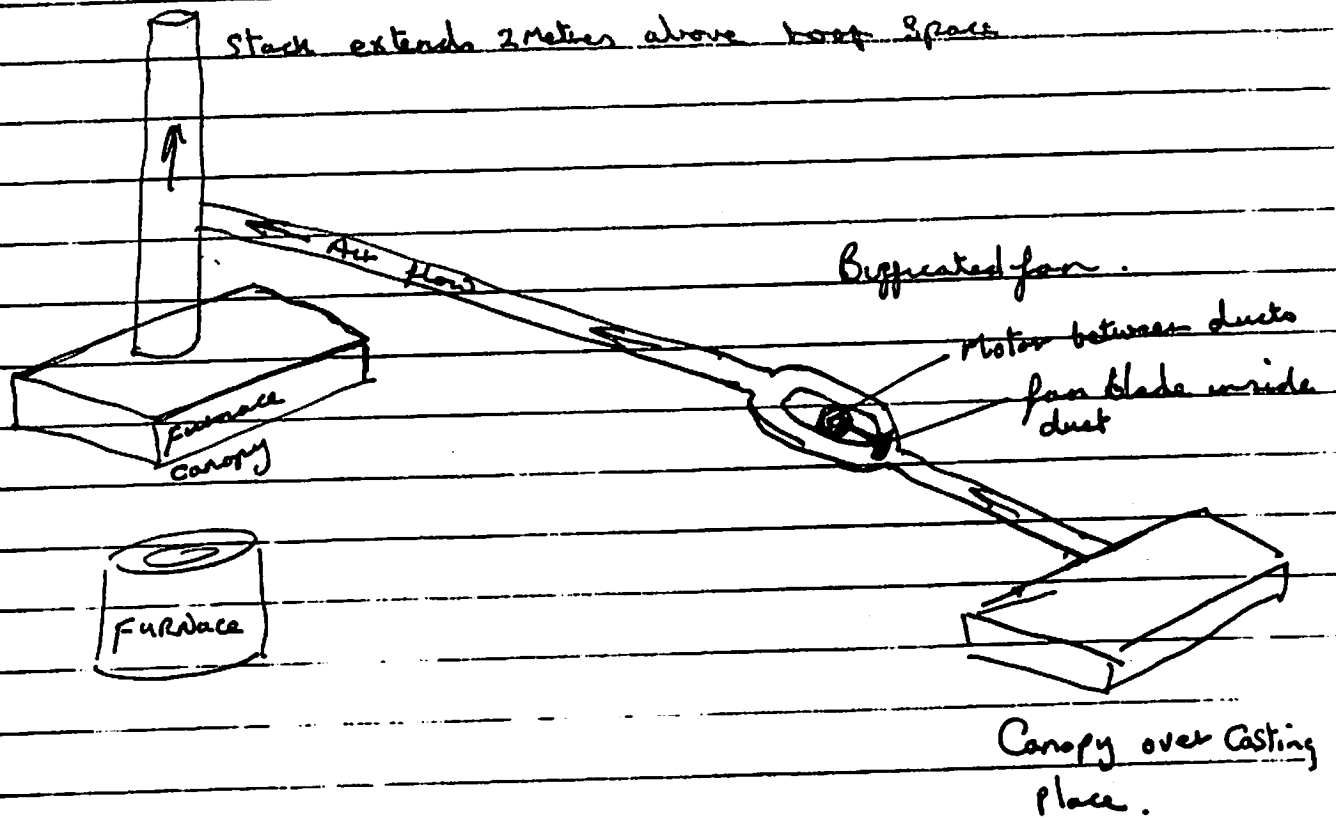 Stack extends 2 Metres above roof space
Air flow
Bifficated fan.
Motor between ducts
fan blade inside
duct
Furnace
canopy
FURNace
Canopy over Casting
place.